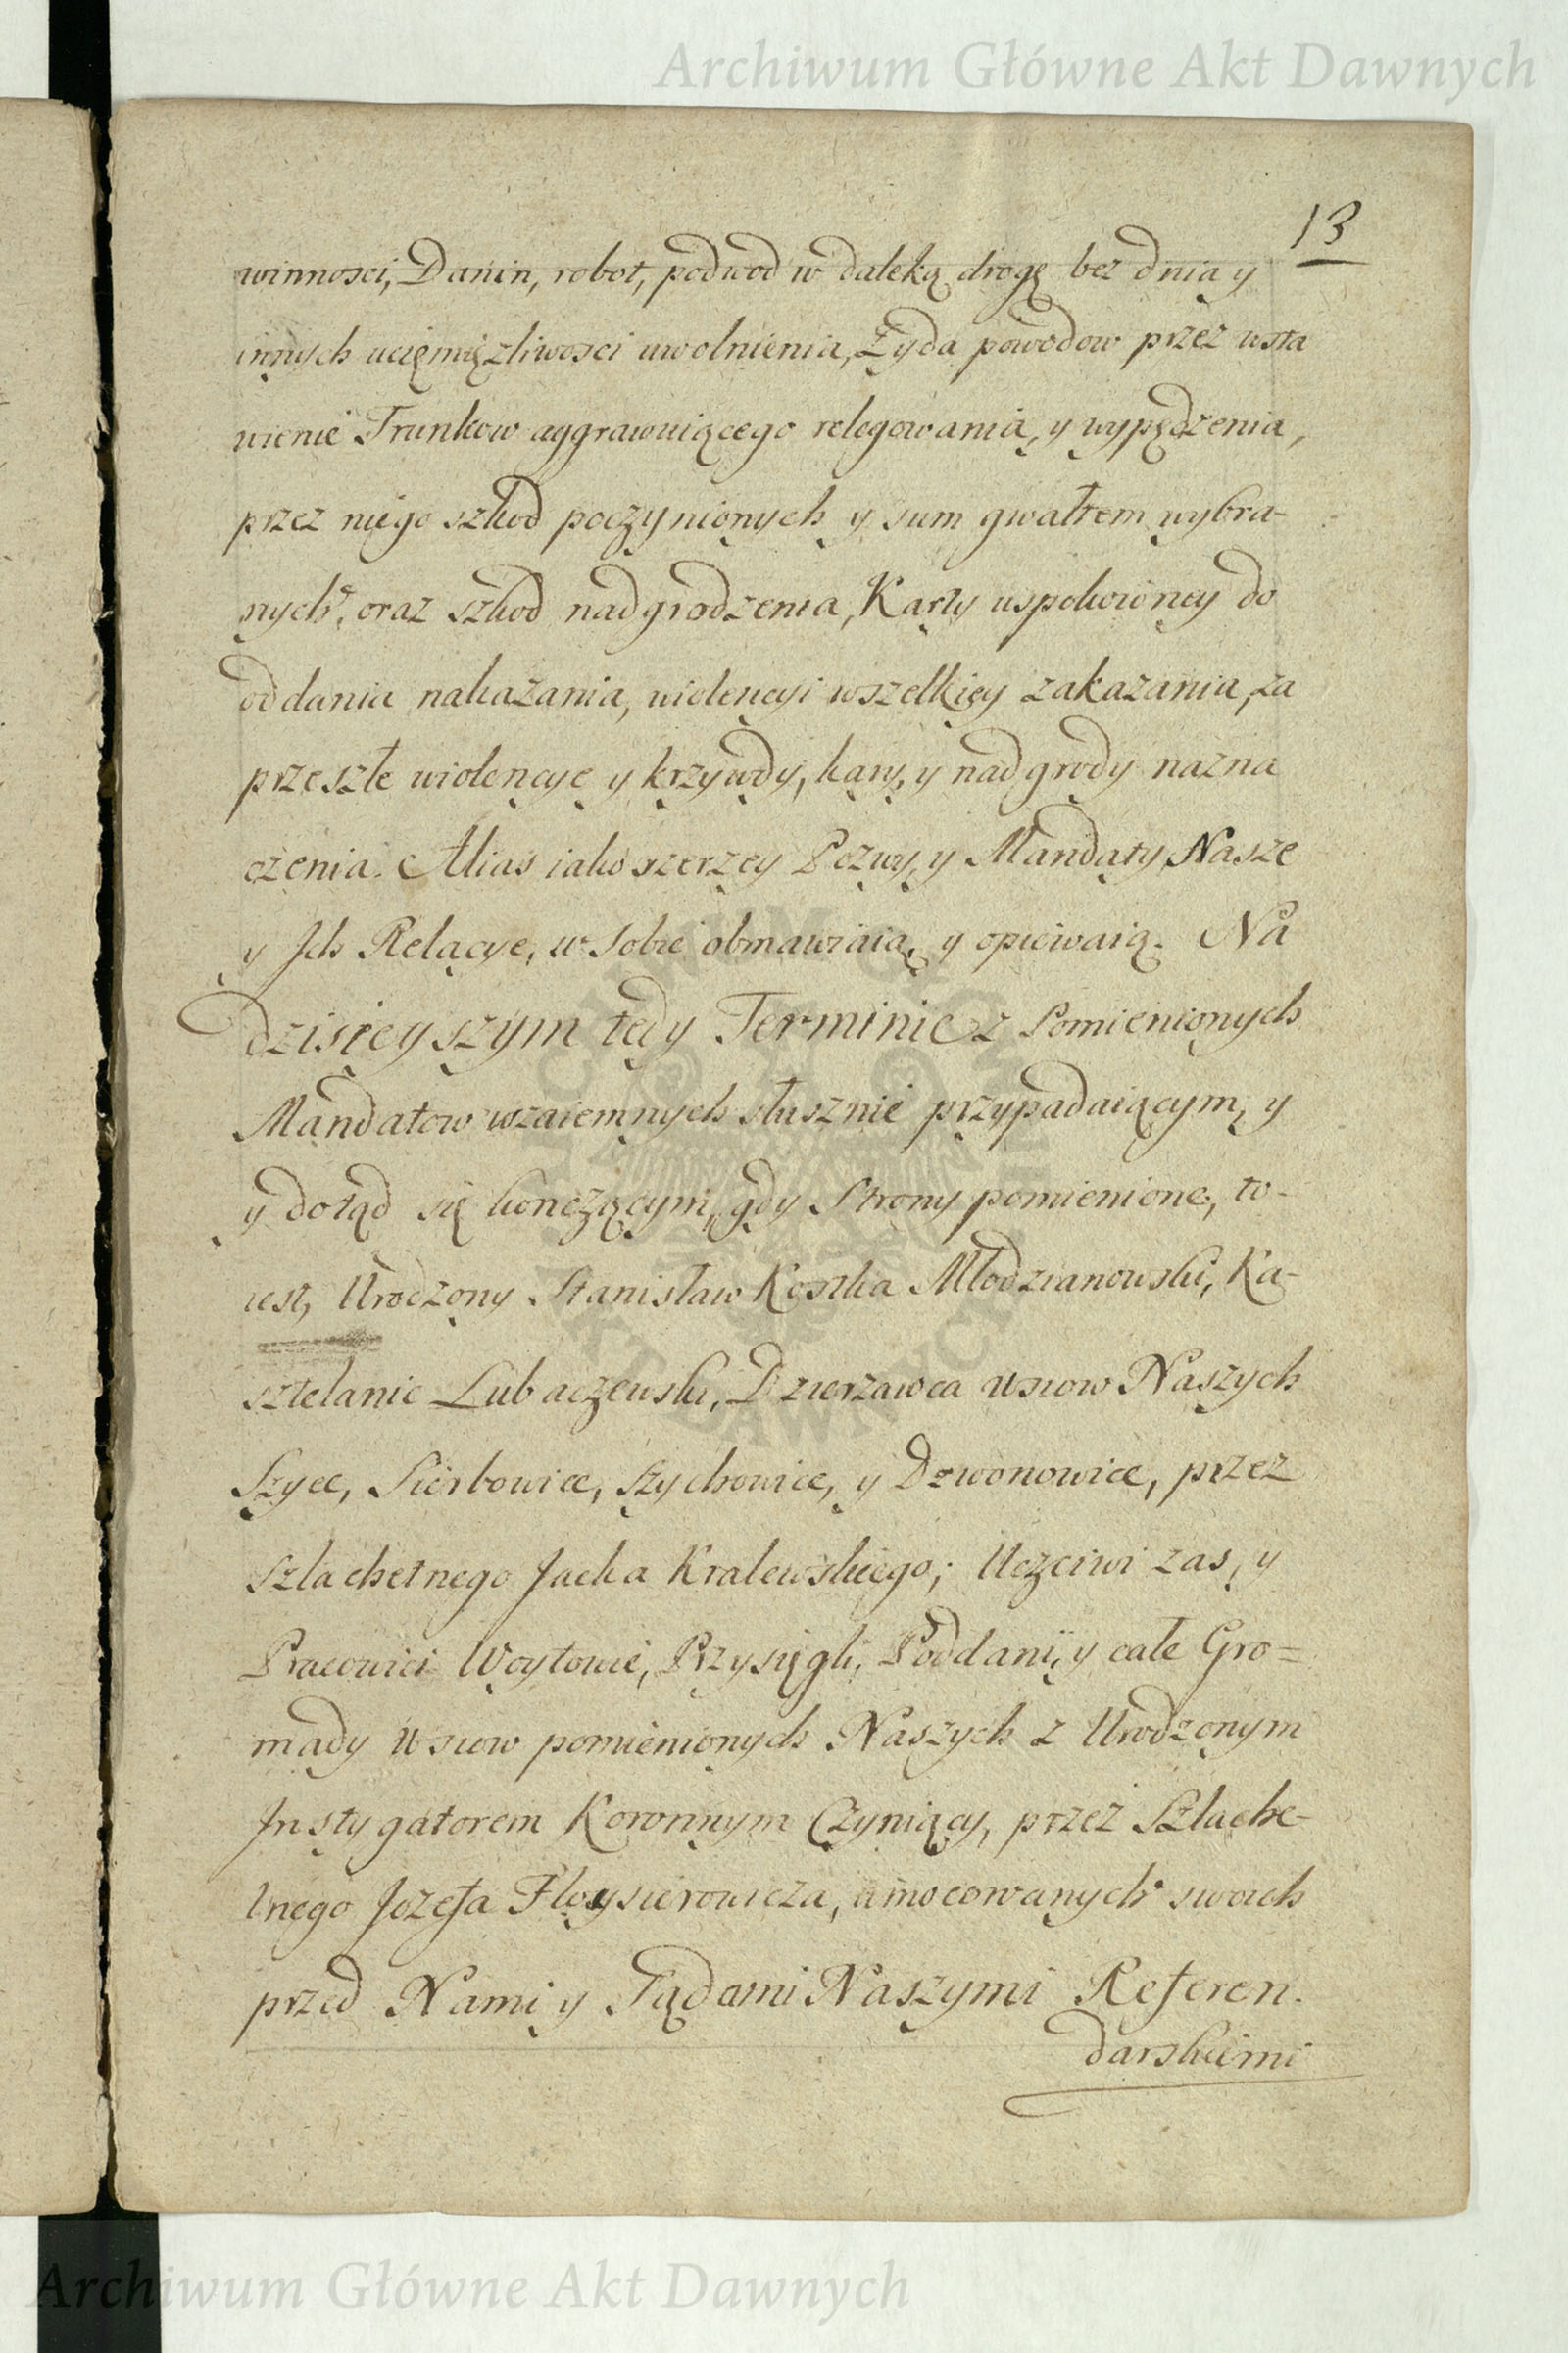 Archiwum Główne Akt Dawnych
13
winnosci, Danin, robot, podwod w daleką drogę bez dnia y
innych ucięmięzliwosci uwolnienia, Żyda powodow przez wsta
wienie Trunkow aggrawuiącego relegowania, y wypędzenia,
przez niego szkod poczynionych y sum gwałtem wybra-
nych, oraz szkod nadgrodzenia, Karty uspokoioney do
oddania nakazania, wiolencyi wszelkiey zakazania, za
przeszłe wiolencye y krzywdy, kary, y nadgrody nazna
czenia. Alias iako szerzey Pozwy, y Mandaty Nasze
y Jch Relacye, w Sobie obmawiaią, y opiewaią. Na
dzisieyszym tedy Terminie z Pomienionych
Mandatow wzaiemnych słusznie przypadaiącym, y
y dotąd się konczącym, gdy Strony pomienione, to-
iest, Urodzony Stanisław Kostka Młodzianowski, Ka-
sztelanic Lubaczewski, Dzierzawca wsiow Naszych
Szyce, Sierbowice, Szychowice, y Dzwonowice, przez
Szlachetnego Jacka Kralewskiego; Uczciwi zas, y
Pracowici Woytowie, Przysięgli, Poddani, y całe Gro=
mady Wsiow pomienionych Naszych z Urodzonym
Jnstygatorem Koronnym Czyniący, przez Szlache-
tnego Jozefa Floysierowicza, umocowanych swoich
przed Nami y Sądami Naszymi Referen.
darskiemi
Archiwum Główne Akt Dawnych